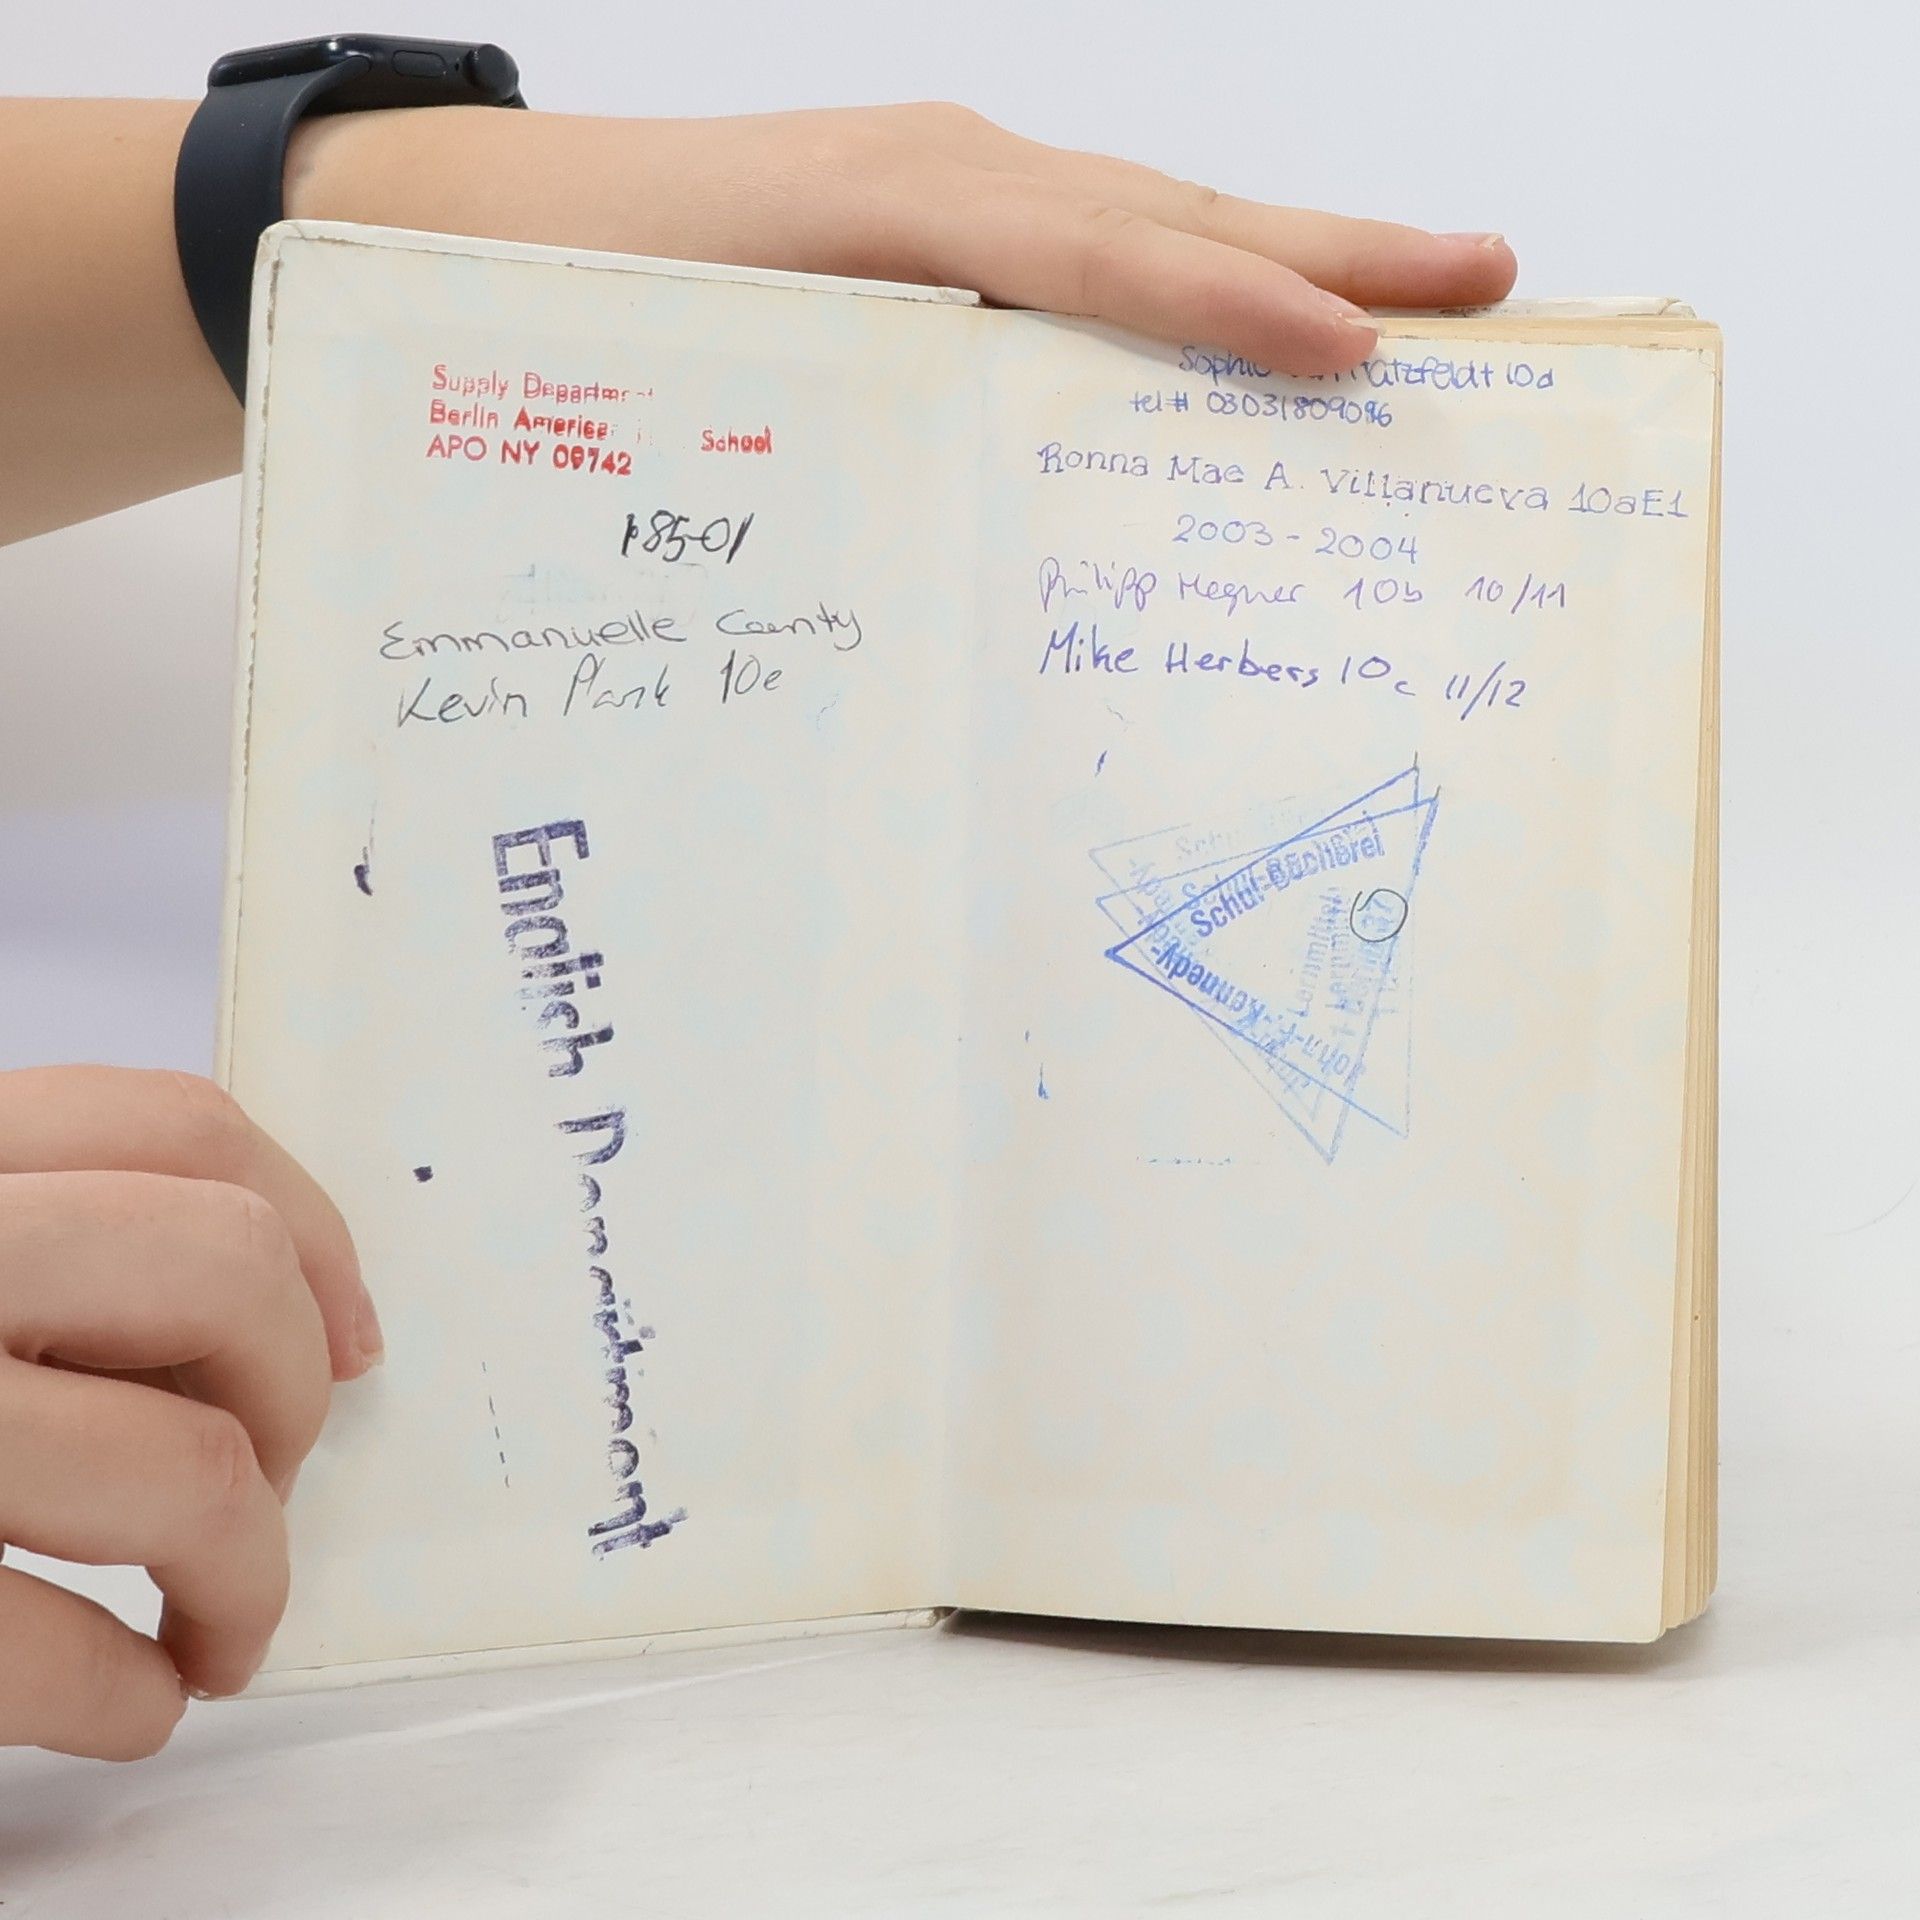 Supply Departm
Berlin America School
APO NY 09742
185-01
Emmanuelle County
Kevin Park 10e
English Department
Sophie atzfeldt 10d
tel# 03031809096
Ronna Mae A. Villanueva 10aE1
2003-2004
Philipp Hegner 10b 10/11
Mike Herbers 10c 11/12
Schul-Bücherei
John-F.-Kennedy-